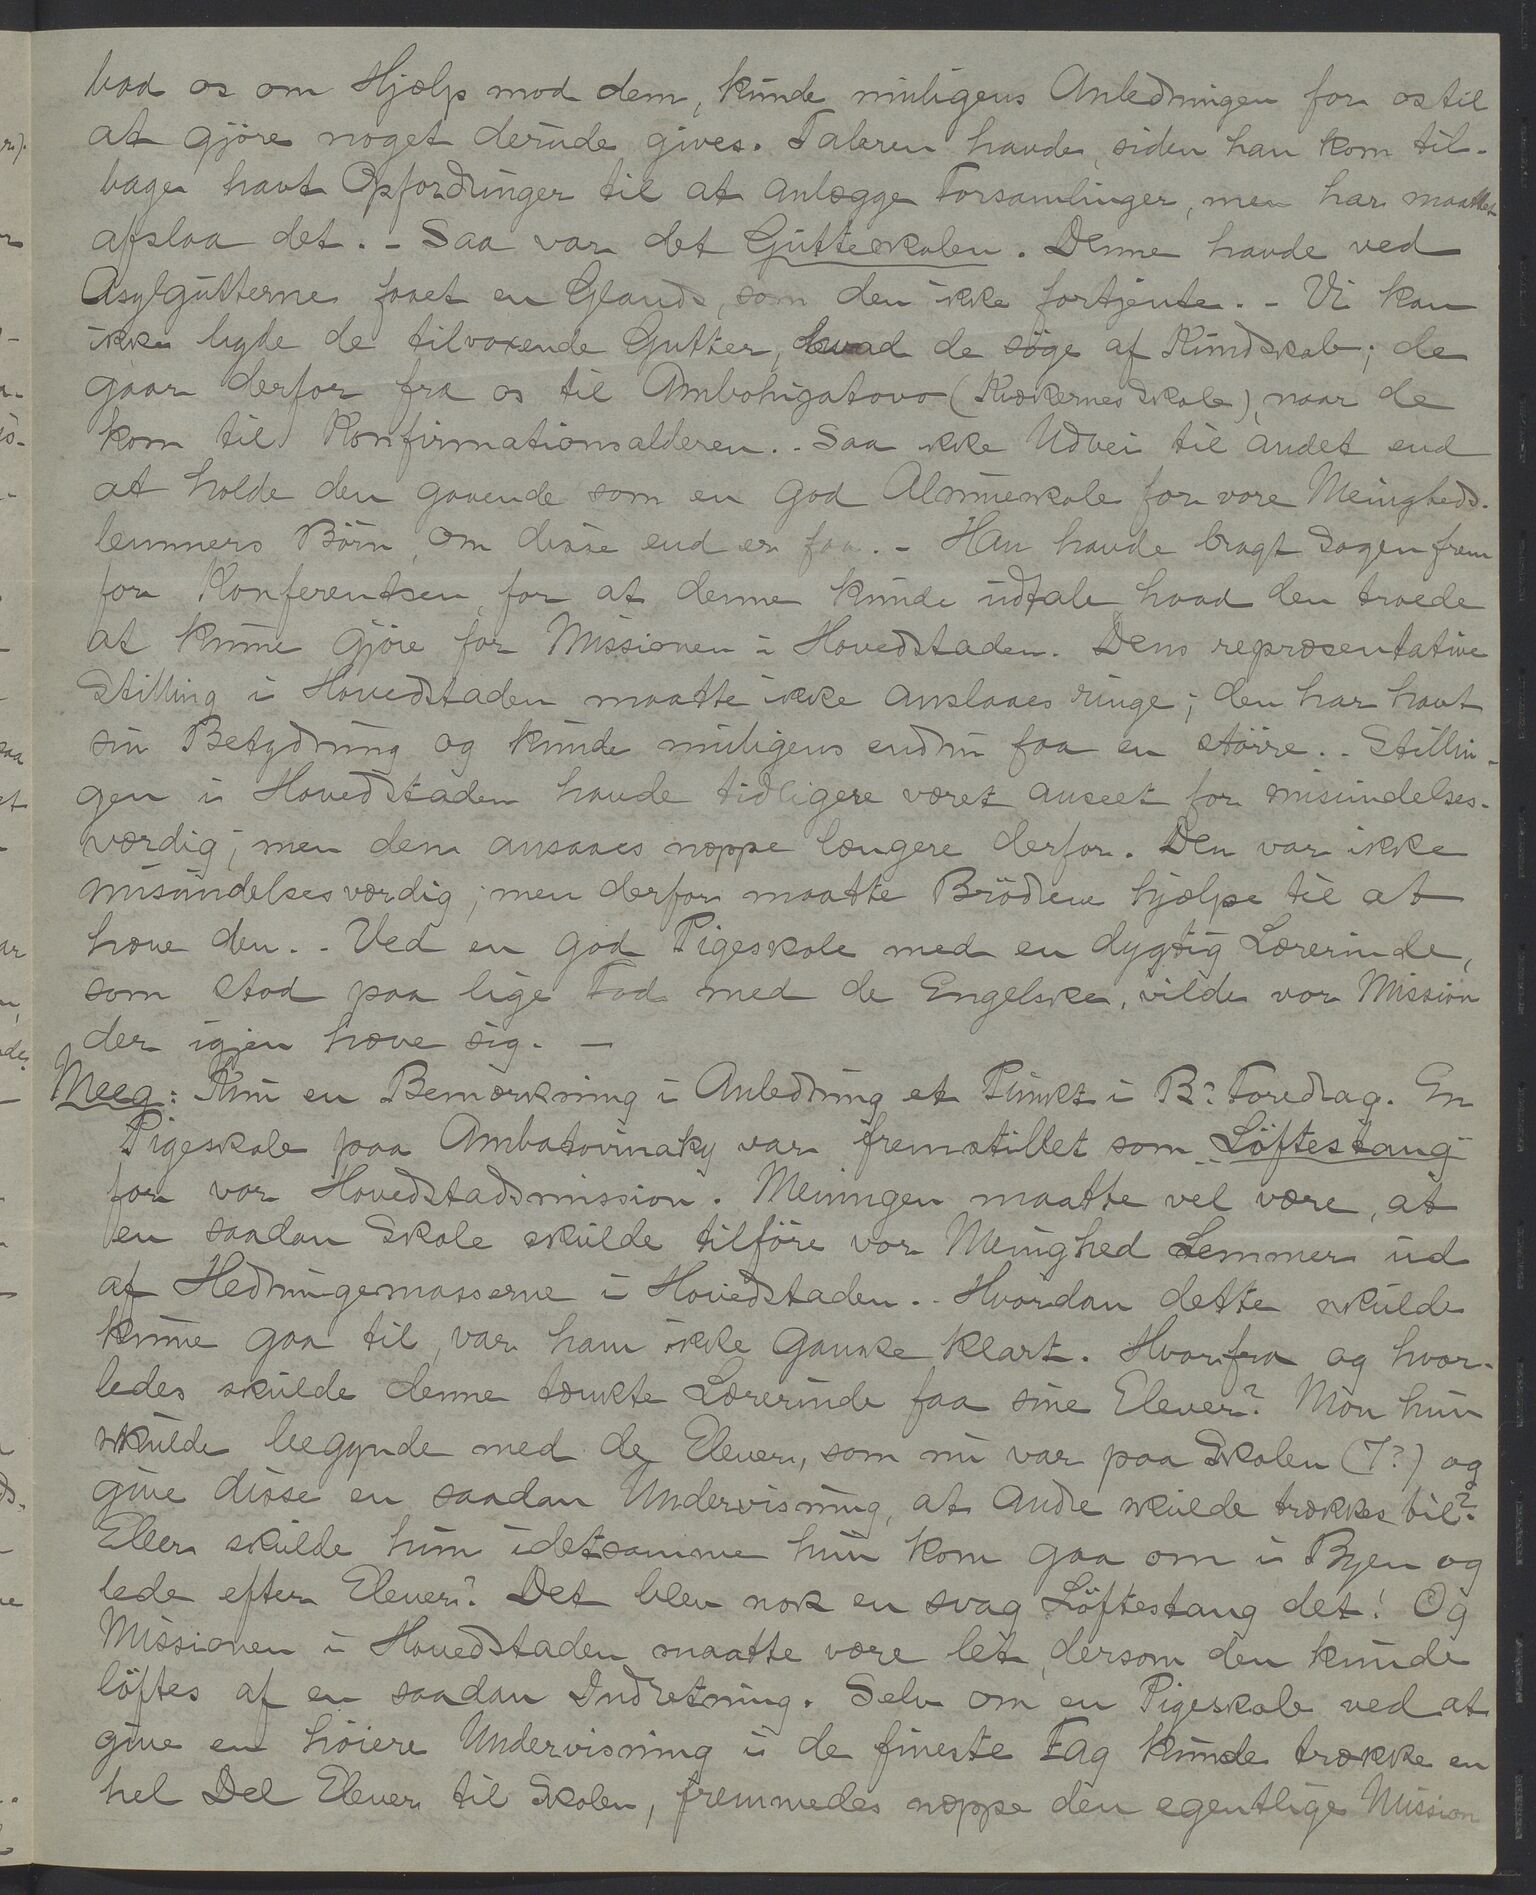 bad os om Hjælp mod dem, kunde muligens Anledningen for os til
at gjöre noget derude gives. Taleren havde, siden han kom til-
bage havt Opfordringer til at anlægge Forsamlinger, men har maattet
afslaa det. - Saa var det Gutteskolen. Denne havde ved
Asylgutterne faaet en Glands, som den ikke fortjente. - Vi kan
ikke byde de tilvoxende Gutter, hvad de söge af Kundskab; de
gaar derfor fra os til Ambohijatovo (Kvækernes Skole), naar de
kom til Konfirmationsalderen. - Saa ikke Udvei til andet end
at holde den gaaende som en god Almueskole for vore Menigheds-
lemmers Börn, om disse end er faa. - Han havde bragt Sagen frem
for Konferentsen, for at denne kunde udtale, hvad den troede
at kunne gjöre for Missionen i Hovedstaden. Dens repræsentative
Stilling i Hovedstaden maatte ikke anslaaes ringe; den har havt
sin Betydning og kunde muligens endnu faa en större. - Stillin-
gen i Hovedstaden havde tidligere været anseet for misundelses-
værdig; men den ansaaes neppe længere derfor. Den var ikke
misundelsesværdig; men derfor maatte Brödrene hjælpe til at
hæve den. - Ved en god Pigeskole med en dygtig Lærerinde,
som stod paa lige Fod med de Engelske, vilde vor Mission
der igjen hæve sig. -
Meeg: Kun en Bemærkning i Anledning et Punkt i B? Foredrag. En
Pigeskole paa Ambatovinaky var fremstillet som "Löftestang"
for vor Hovedstadsmission. Meningen maatte vel være, at
en saadan Skole skulde tilföre vor Menighed Lemmer ud
af Hedningemasserne i Hovedstaden. - Hvordan dette skulde
kunne gaa til, var ham ikke ganske klart. Hvorfra og hvor-
ledes skulde denne tænkte Lærerinde faa sine Elever? Mon hun
skulde begynde med de Elever, som nu var paa Skolen (7?) og
give disse en saadan Undervisning, at andre skulde trækkes til?
Eller skulde hun idetsamme hun kom gaa om i Byen og
lede efter Elever? Det blev nok en svag Löftestang det! Og
Missionen i Hovedstaden maatte være let, dersom den kunde
löftes af en saadan Indretning. Selv om en Pigeskole ved at
give en höiere Undervisning i de fineste Fag kunde trække en
hel Del Elever til Skolen, fremmedes neppe den egentlige Mission